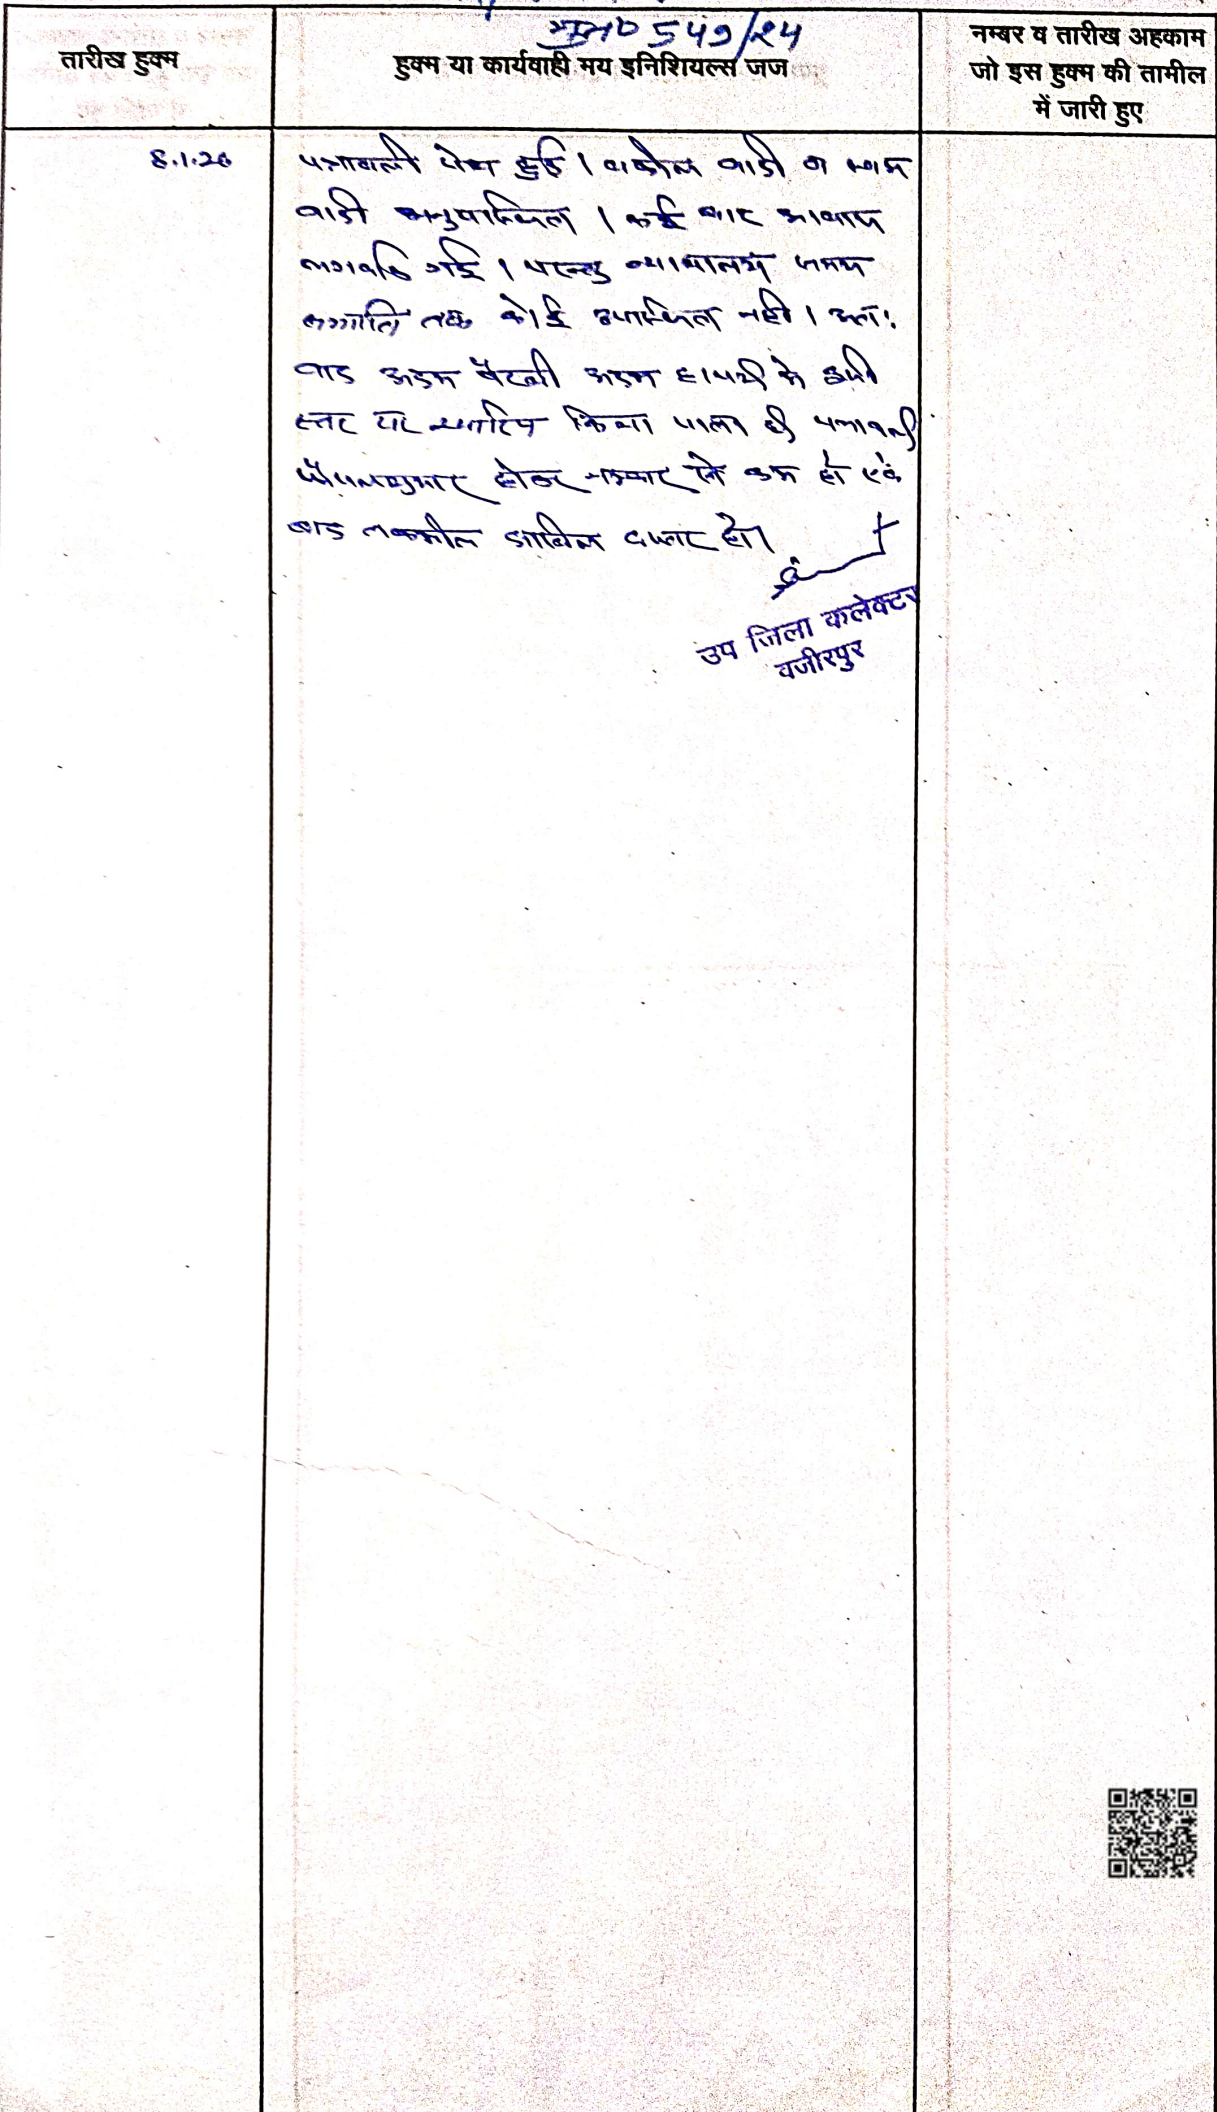 मु0न0 549/24
तारीख हुक्म
हुक्म या कार्यवाही मय इनिशियल्स जज
नम्बर व तारीख अहकाम
जो इस हुक्म की तामील
में जारी हुए
8.1.26
पत्रावली पेश हुई । वकील वादी व स्वयं
वादी अनुपस्थित । कई बार आवाज
लगवाई गई । परन्तु न्यायालय समय
समाप्ति तक कोई उपस्थित नहीं । अतः
वाद अदम पैरवी अदम हाजरी में इसी
स्तर पर खारिज किया जाता है पत्रावली
फैसलशुमार होकर नम्बर से कम हो एवं
बाद तकमील दाखिल दफ्तर हो।
उप जिला कलेक्टर
वजीरपुर